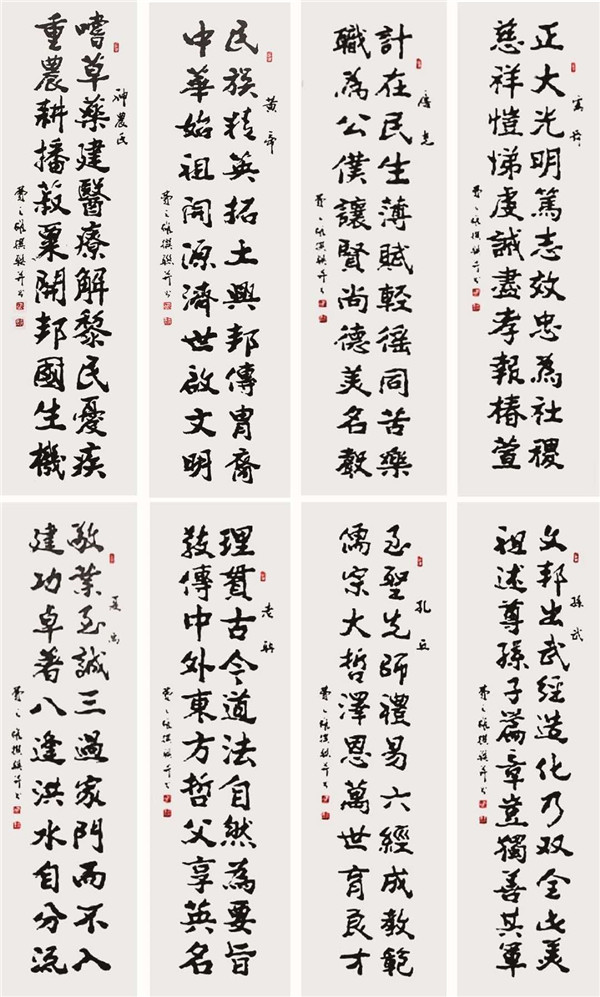 神農氏
嚐草藥建醫療解黎民憂疾
重農耕播菽粟開邦國生機
費之雄撰聯并书
黃帝
民族精英拓土興邦傳胄裔
中華始祖開源濟世啟文明
費之雄撰聯并书
唐堯
計在民生薄賦輕徭同苦樂
職為公僕讓賢尚德美名聲
費之雄撰聯并书
虞舜
正大光明篤志效忠為社稷
慈祥愷悌虔誠盡孝報椿萱
費之雄撰聯并书
夏禹
敬業至誠三過家門而不入
建功卓著八逢洪水自分流
費之雄撰聯并书
老聃
理貫古今道法自然為要旨
教傳中外東方哲父享英名
費之雄撰聯并书
孔丘
至聖先師禮易六經成教範
儒宗大哲澤恩萬世育良才
費之雄撰聯并书
孫武
文邦出武經造化乃双全此美
祖述尊孫子篇章豈獨善其軍
費之雄撰聯并书